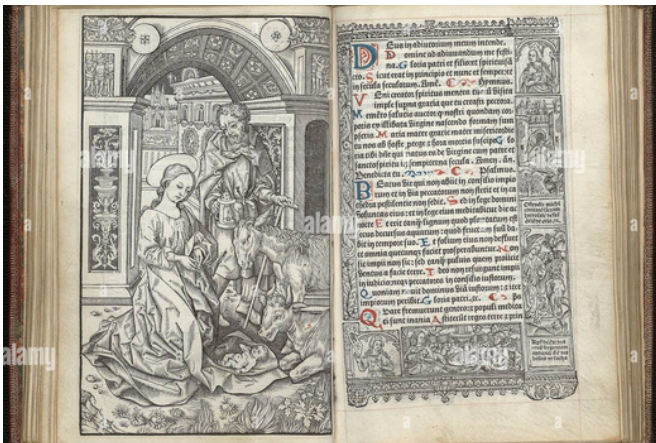 Deus in adiutorium meum intende.
Domine ad adiuvandum me festi
na. Gloria patri et filio et spiritui sā
cto. Sicut erat in principio et nunc et semper et
in secula seculorum. Amē. Hymnus.
Veni creator spiritus mentes tuorū visita
imple superna gratia que tu creasti pectora.
Memēto salutis auctor qͥ nostri quondam cor
poris ex illibata virgine nascendo formam sum
pseris. Maria mater gratie mater misericordie
tu nos ab hoste protege et hora mortis suscipe. Glo
ria tibi dñe qui natus es de virgine cum patre et
sancto spiritu in sempiterna secula. Amen. añ.
Benedicta tu. Psalmus.
Beatus vir qui non abiit in consilio impio
rum et in via peccatorum non stetit et in ca
thedra pestilentie non sedit. Sed in lege domini
voluntas eius: et in lege eius meditabitur die ac
nocte. Et erit tanquam lignum quod plantatum est
secus decursus aquarum: quod fructum suum da
bit in tempore suo. Et folium eius non defluet
et omnia quecunque faciet prosperabuntur. Non
sic impii non sic: sed tanquam pulvis quem proiicit
ventus a facie terre. Ideo non resurgunt impii
in iudicio: neque peccatores in consilio iustorum.
Quoniam novit dominus viam iustorum: et iter
impiorum peribit. Gloria patri. ps
Quare fremuerunt gentes: et populi medita
ti sunt inania. Astiterunt reges terre et prin
alamy